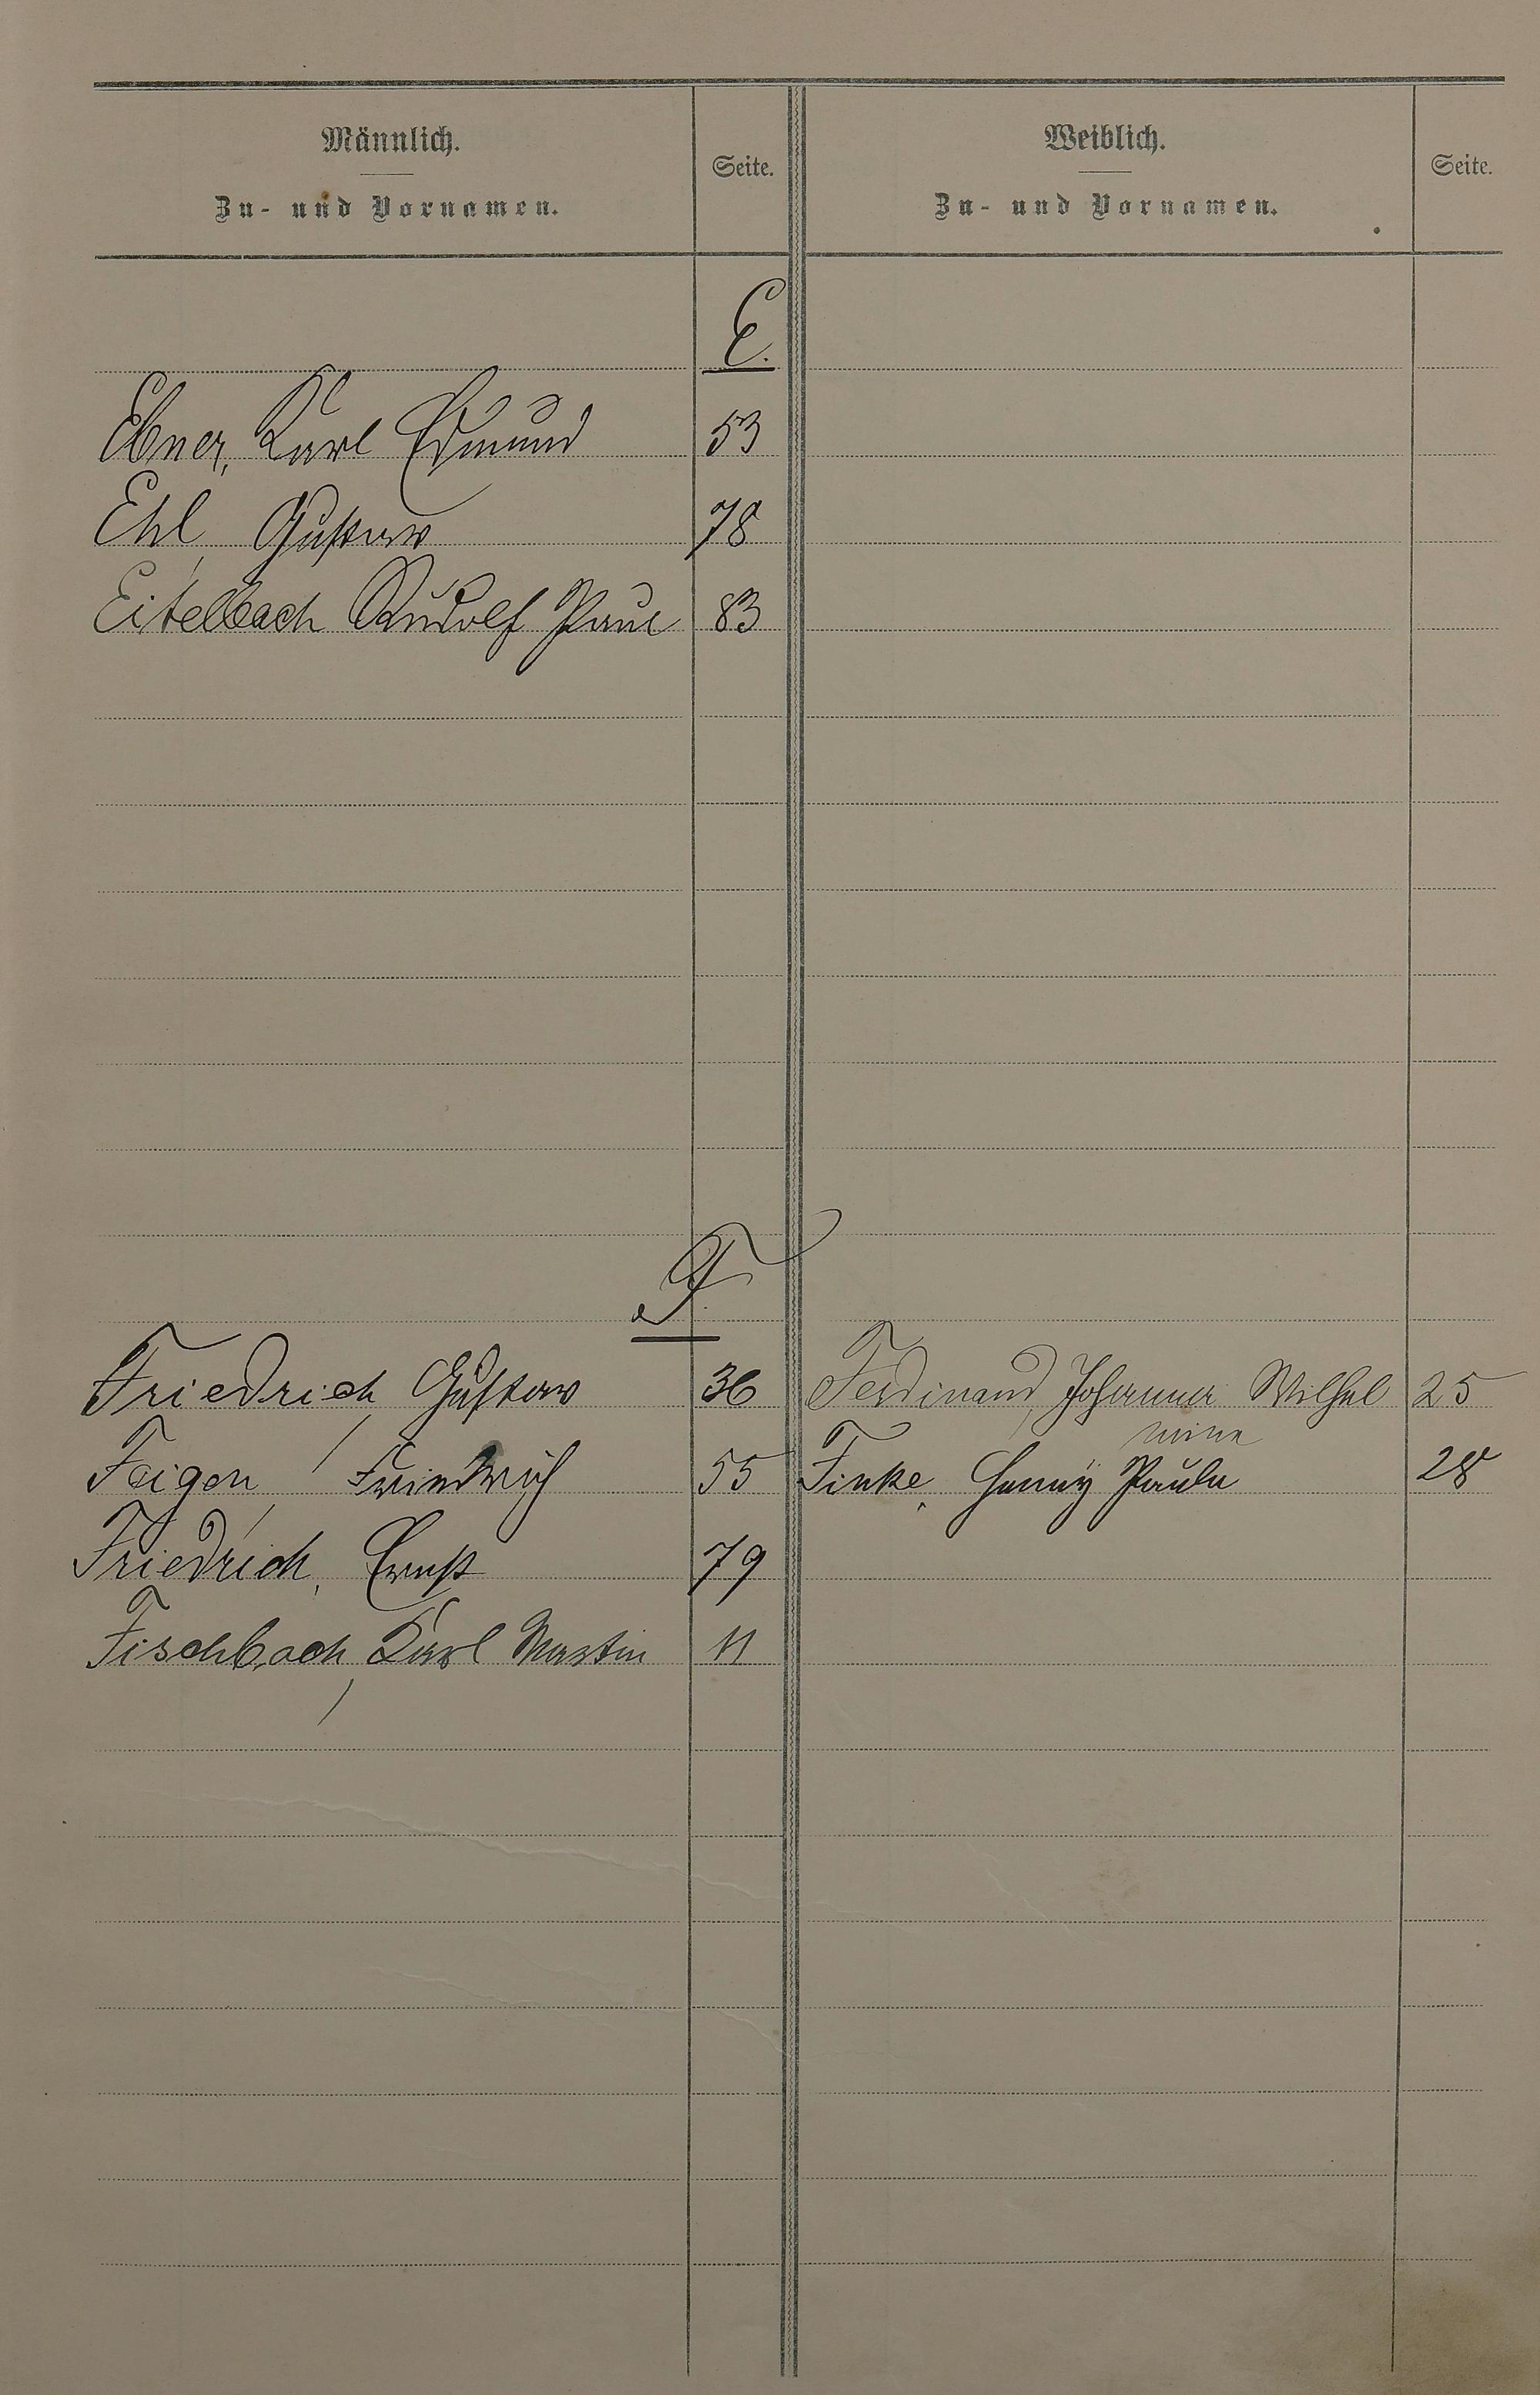 Männlich.
Zu- und Vornamen.
Seite.
Weiblich.
Zu- und Vornamen.
Seite.
E.
Ebner, Karl Edmund 53
Ehl, Gustav 78
Eitelbach Rudolf Paul 83
F.
Friedrich, Gustav 36 Ferdinand, Johanna Wilhel 25
mine
Feigen, Friedrich 55 Finke, Henny Paula 28
Friedrich, Ernst 79
Fischbach, Karl Martin 11